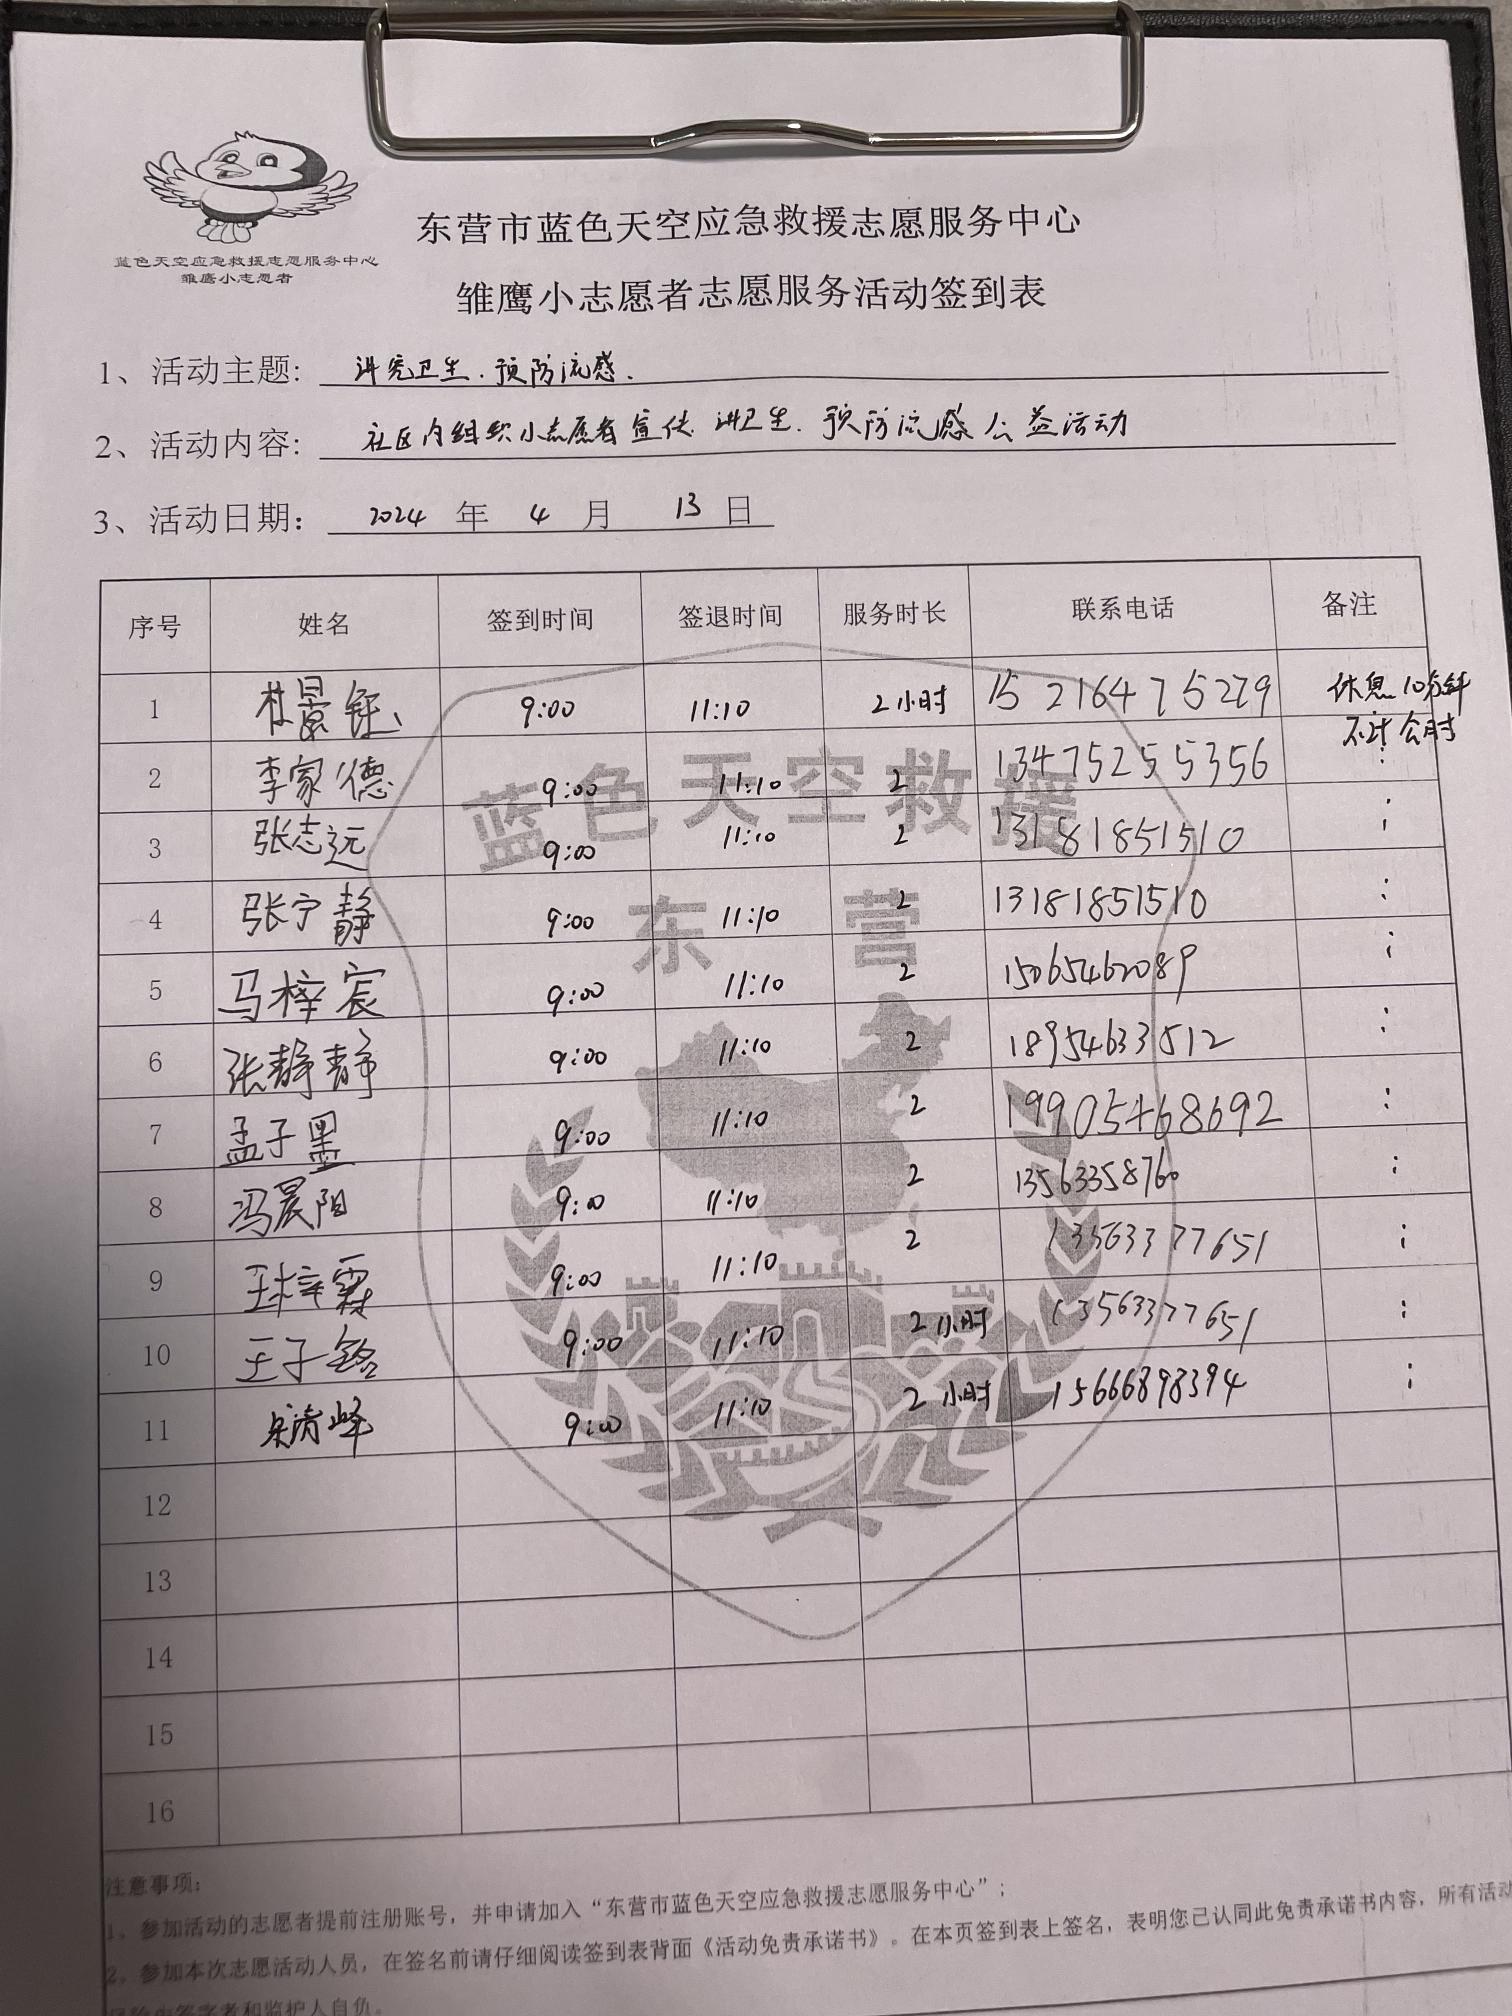 蓝色天空应急救援志愿服务中心
雏鹰小志愿者
东营市蓝色天空应急救援志愿服务中心
雏鹰小志愿者志愿服务活动签到表
1、活动主题: 讲究卫生.预防流感.
2、活动内容: 社区内组织小志愿者宣传.讲卫生.预防流感公益活动
3、活动日期: 2024 年 4 月 13 日
序号 姓名 签到时间 签退时间 服务时长 联系电话 备注
1 杜景钰 9:00 11:10 2小时 15216475279 休息10分钟
不计公时
2 李家德 9:00 11:10 2 13475255356 :
3 张志远 9:00 11:10 2 13181851510 :
4 张宁静 9:00 11:10 2 13181851510 :
5 马梓宸 9:00 11:10 2 15065462089 :
6 张静静 9:00 11:10 2 18954633512 :
7 孟子墨 9:00 11:10 2 19905468692 :
8 冯晨阳 9:00 11:10 2 13563358760 :
9 王梓霖 9:00 11:10 2 13563377651 :
10 王子铭 9:00 11:10 2小时 13563377651 :
11 清峰 9:00 11:10 2小时 15666898394 :
12
13
14
15
16
蓝色天空救援
东营
注意事项:
1、参加活动的志愿者提前注册账号，并申请加入“东营市蓝色天空应急救援志愿服务中心”；
2、参加本次志愿活动人员，在签名前请仔细阅读签到表背面《活动免责承诺书》。在本页签到表上签名，表明您已认同此免责承诺书内容，所有活动
风险由签字者和监护人自负。